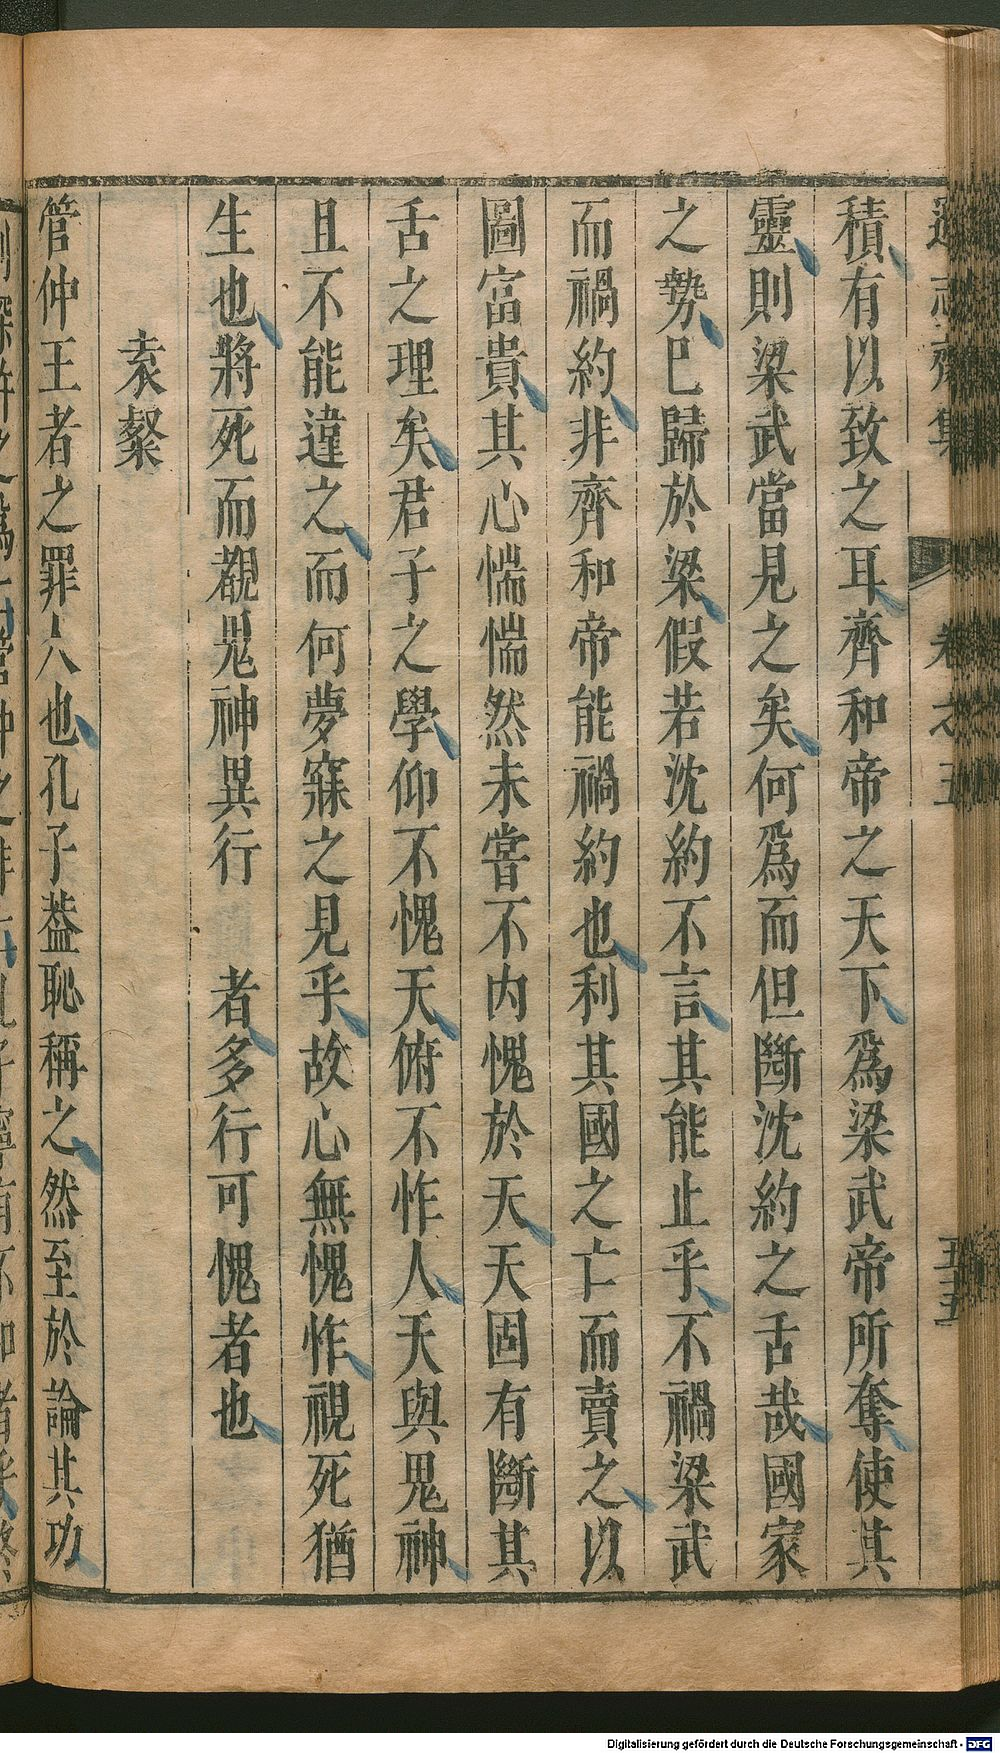 遜志齋集 卷之五 五十五
積有以致之耳齊和帝之天下爲梁武帝所奪使其
靈則梁武當見之矣何爲而但斷沈約之舌哉國家
之勢已歸於梁假若沈約不言其能止乎不禍梁武
而禍約非齊和帝能禍約也利其國之亡而賣之以
圖富貴其心惴惴然未嘗不内愧於天天固有斷其
舌之理矣君子之學仰不愧天俯不怍人天與鬼神
且不能違之而何夢寐之見乎故心無愧怍視死猶
生也將死而覩鬼神異行 者多行可愧者也
袁粲
管仲王者之罪人也孔子葢恥稱之然至於論其功
Digitalisierung gefördert durch die Deutsche Forschungsgemeinschaft - DFG